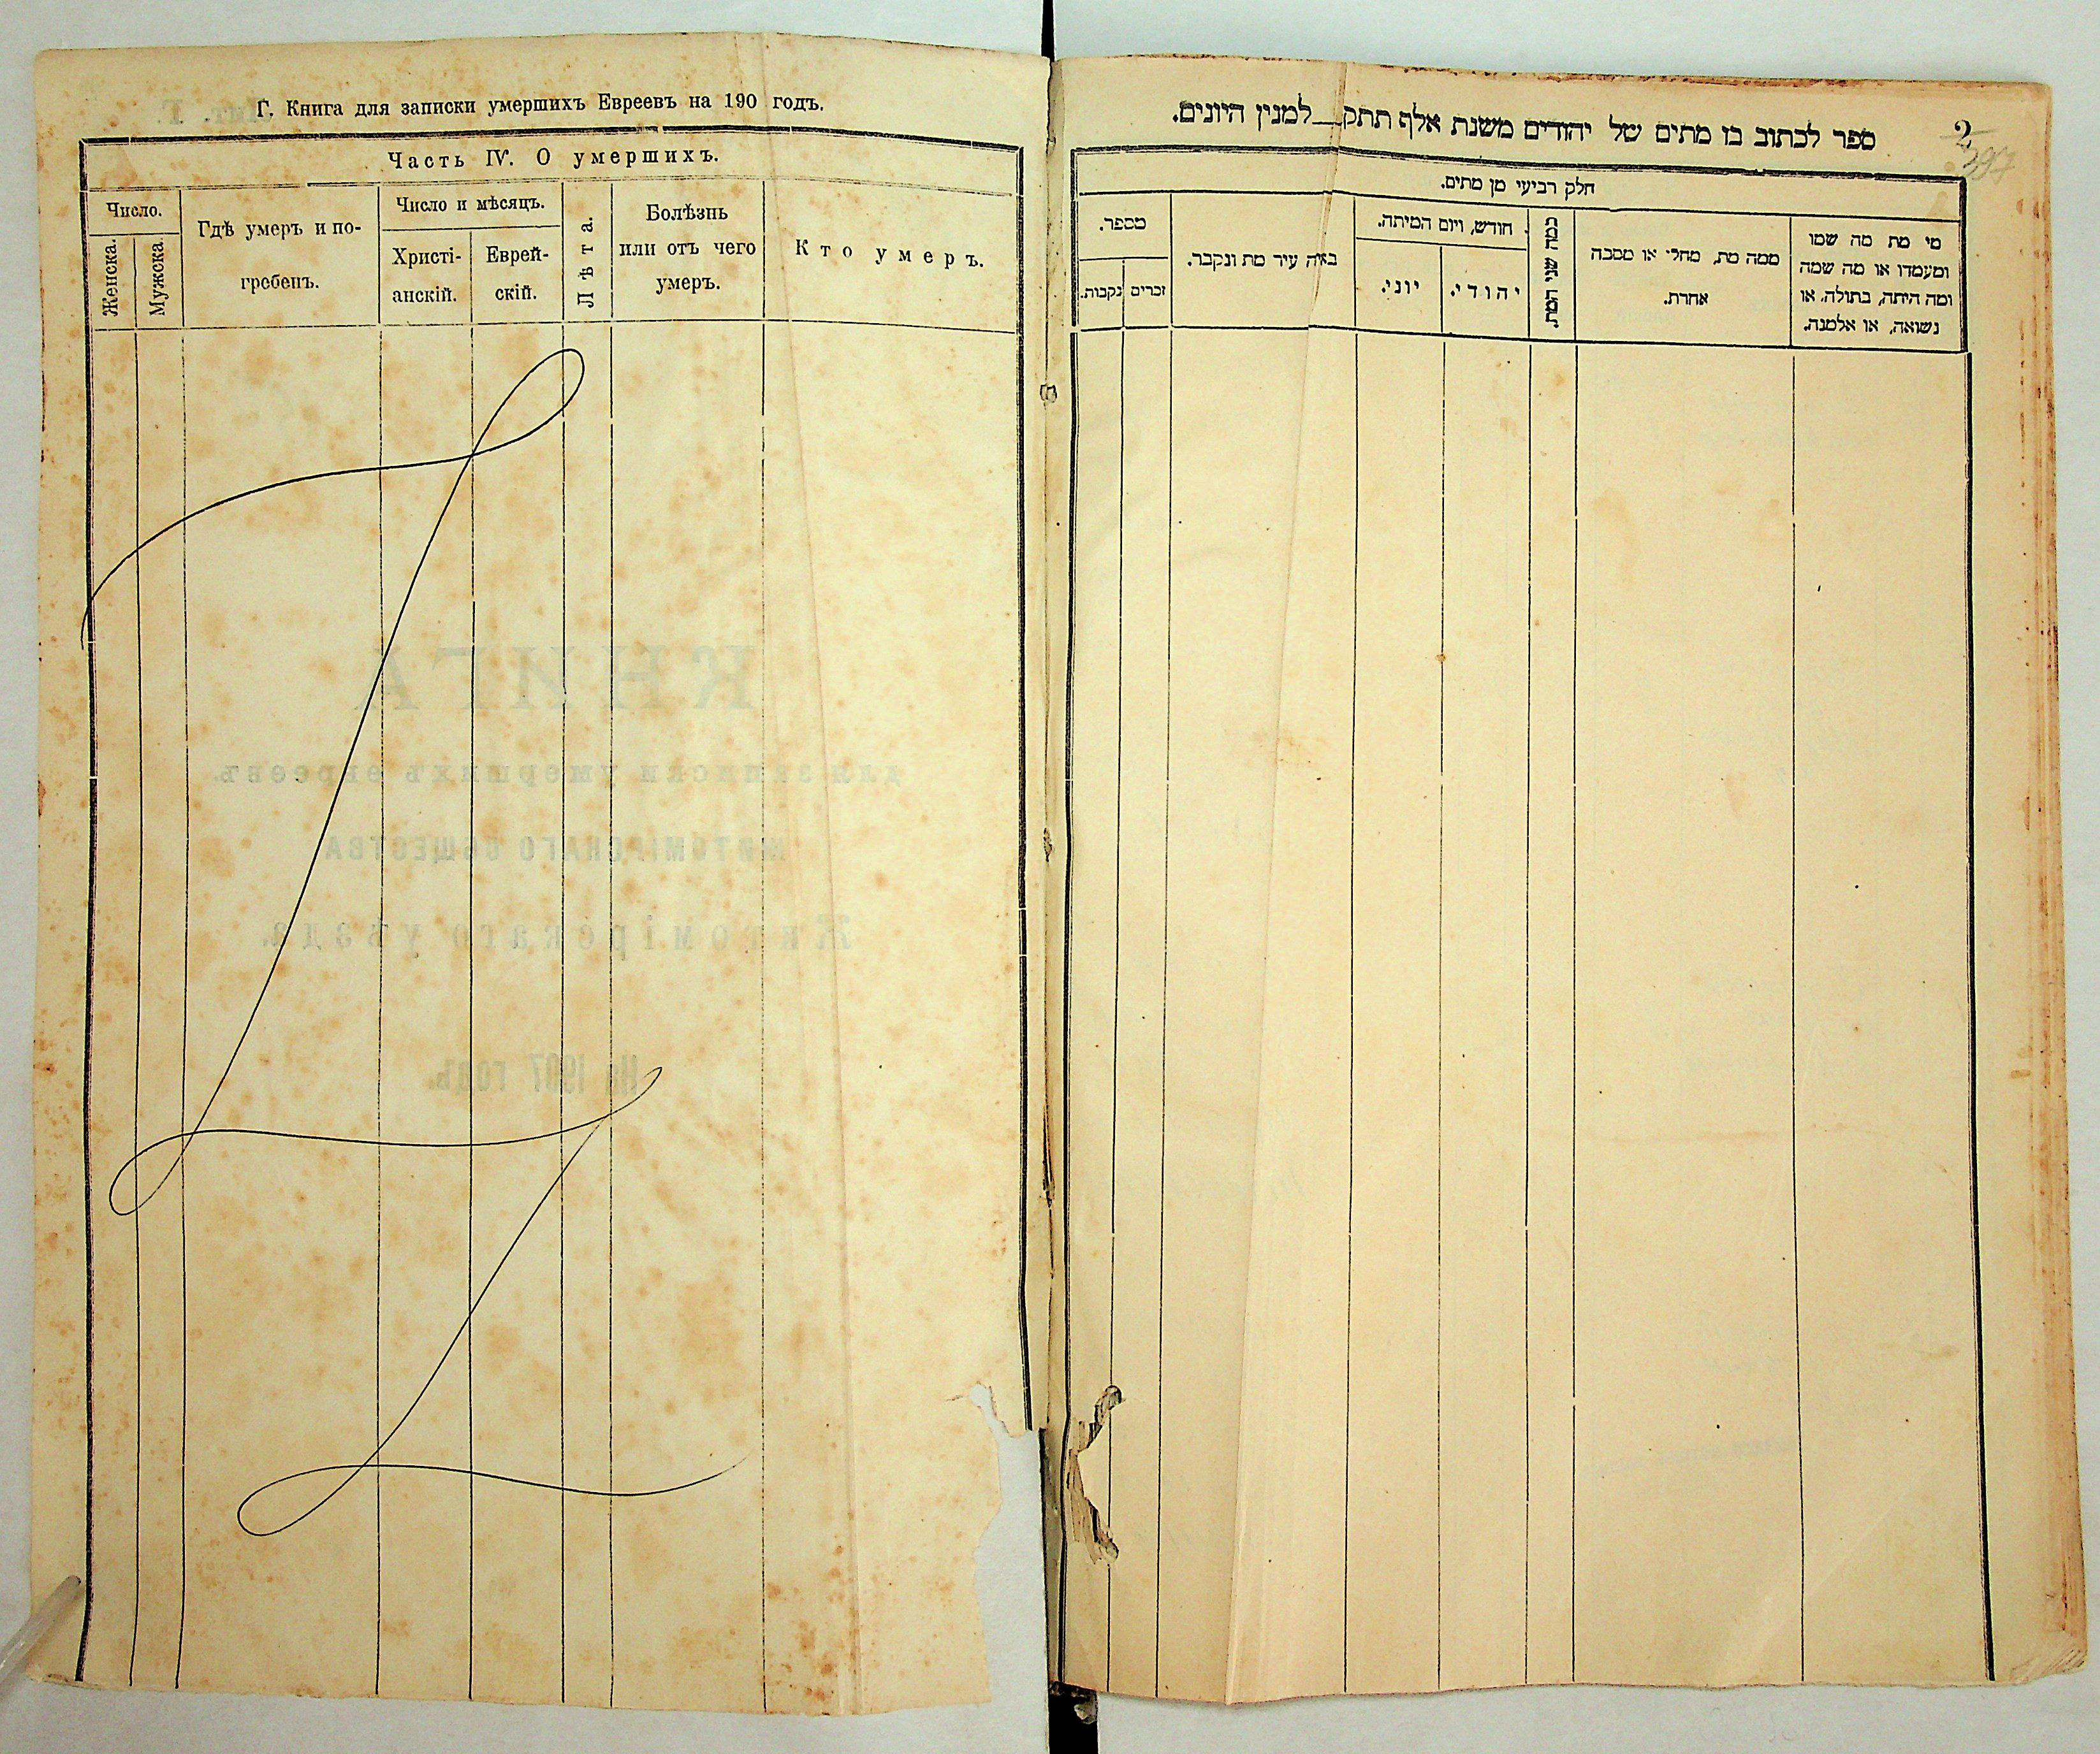 Г. Книга для записки умершихъ Евреевъ на 190 годъ.
Часть IV. О умершихъ.
Число.
Женска.
Мужска.
Гдѣ умеръ и по-
гребенъ.
Число и мѣсяцъ.
Христі-
анскій.
Еврей-
скій.
Лѣта.
Болѣзнь
или отъ чего
умеръ.
Кто умеръ.
КНИГА
для записки умершихъ евреевъ.
ЖИТОМІРСКАГО ОБЩЕСТВА
Житомірскаго уѣзда.
На 1907 годъ.
ספר לכתוב בו מתים של יהודים משנת אלף תתק__למנין היונים.
2
חלק רביעי מן מתים.
מספר.
נקבות.
זכרים
באיה עיר מת ונקבר.
חודש, ויום המיתה.
יוני.
יהודי.
כמה שני המת.
ממה מת, מחלי או מסבה
אחרת.
מי מת מה שמו
ומעמדו או מה שמה
ומה היתה, בתולה, או
נשואה, או אלמנה.